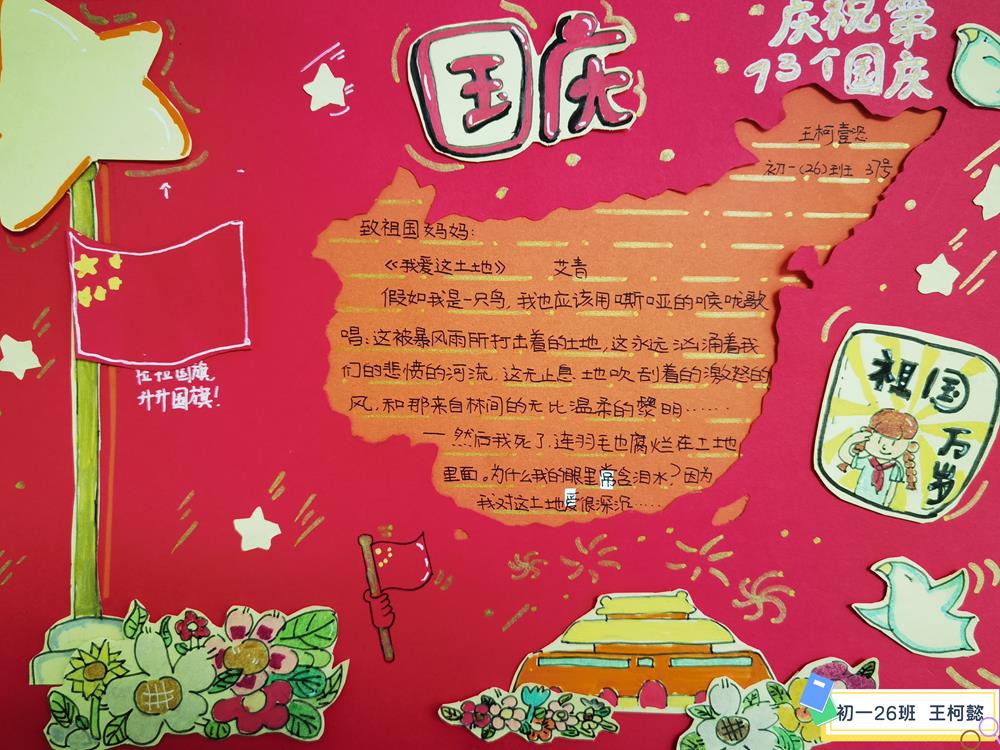 国庆
庆祝第
73个国庆
王柯壹懿
初一(26)班 37号
致祖国妈妈:
《我爱这土地》 艾青
假如我是一只鸟,我也应该用嘶哑的喉咙歌
唱:这被暴风雨所打击着的土地,这永远汹涌着我
们的悲愤的河流,这无止息地吹刮着的激怒的
风,和那来自林间的无比温柔的黎明……
—然后我死了,连羽毛也腐烂在土地
里面。为什么我的眼里常含泪水?因为
我对这土地爱很深沉……
国旗
升升国旗!
祖国
万岁
初一26班 王柯懿